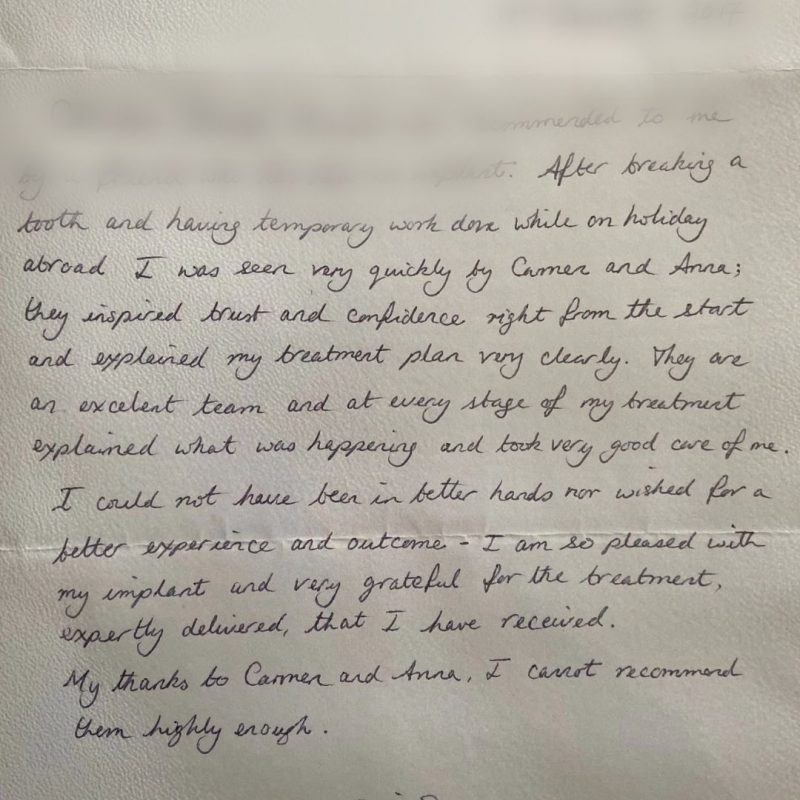 2017
recommended to me
by a friend. After breaking a
tooth and having temporary work done while on holiday
abroad I was seen very quickly by Carmen and Anna;
they inspired trust and confidence right from the start
and explained my treatment plan very clearly. They are
an excelent team and at every stage of my treatment
explained what was happening and took very good care of me.
I could not have been in better hands nor wished for a
better experience and outcome - I am so pleased with
my implant and very grateful for the treatment,
expertly delivered, that I have received.
My thanks to Carmen and Anna, I cannot recommend
them highly enough.